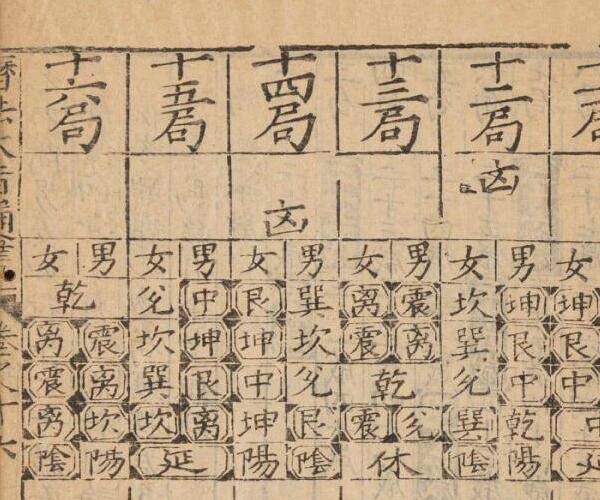 局
女坤艮中
十二局
凶
男坤艮中乾陽
女坎巽兌巽陰
十三局
男震离乾兌休
女离震震
十四局
凶
男巽坎兌艮陰
女艮坤中坤陽
十五局
男中坤艮离延
女兌坎巽坎
十六局
男乾震离坎陽
女离震离陰
卷之十六